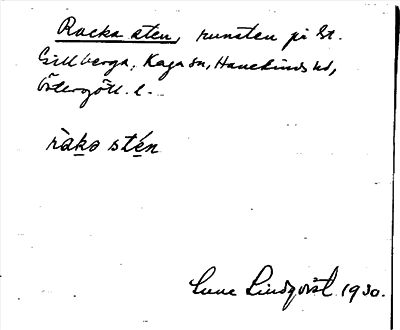 Racka sten, runsten på St.
Gillberga, Kaga sn, Hanekinds hd,
Östergötl. l.
ràkə stén
Sune Lindqvist 1930.